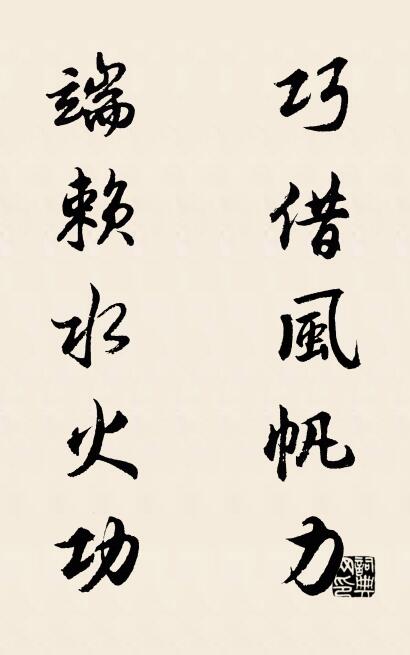 巧借風帆力
端賴水火功
詞典